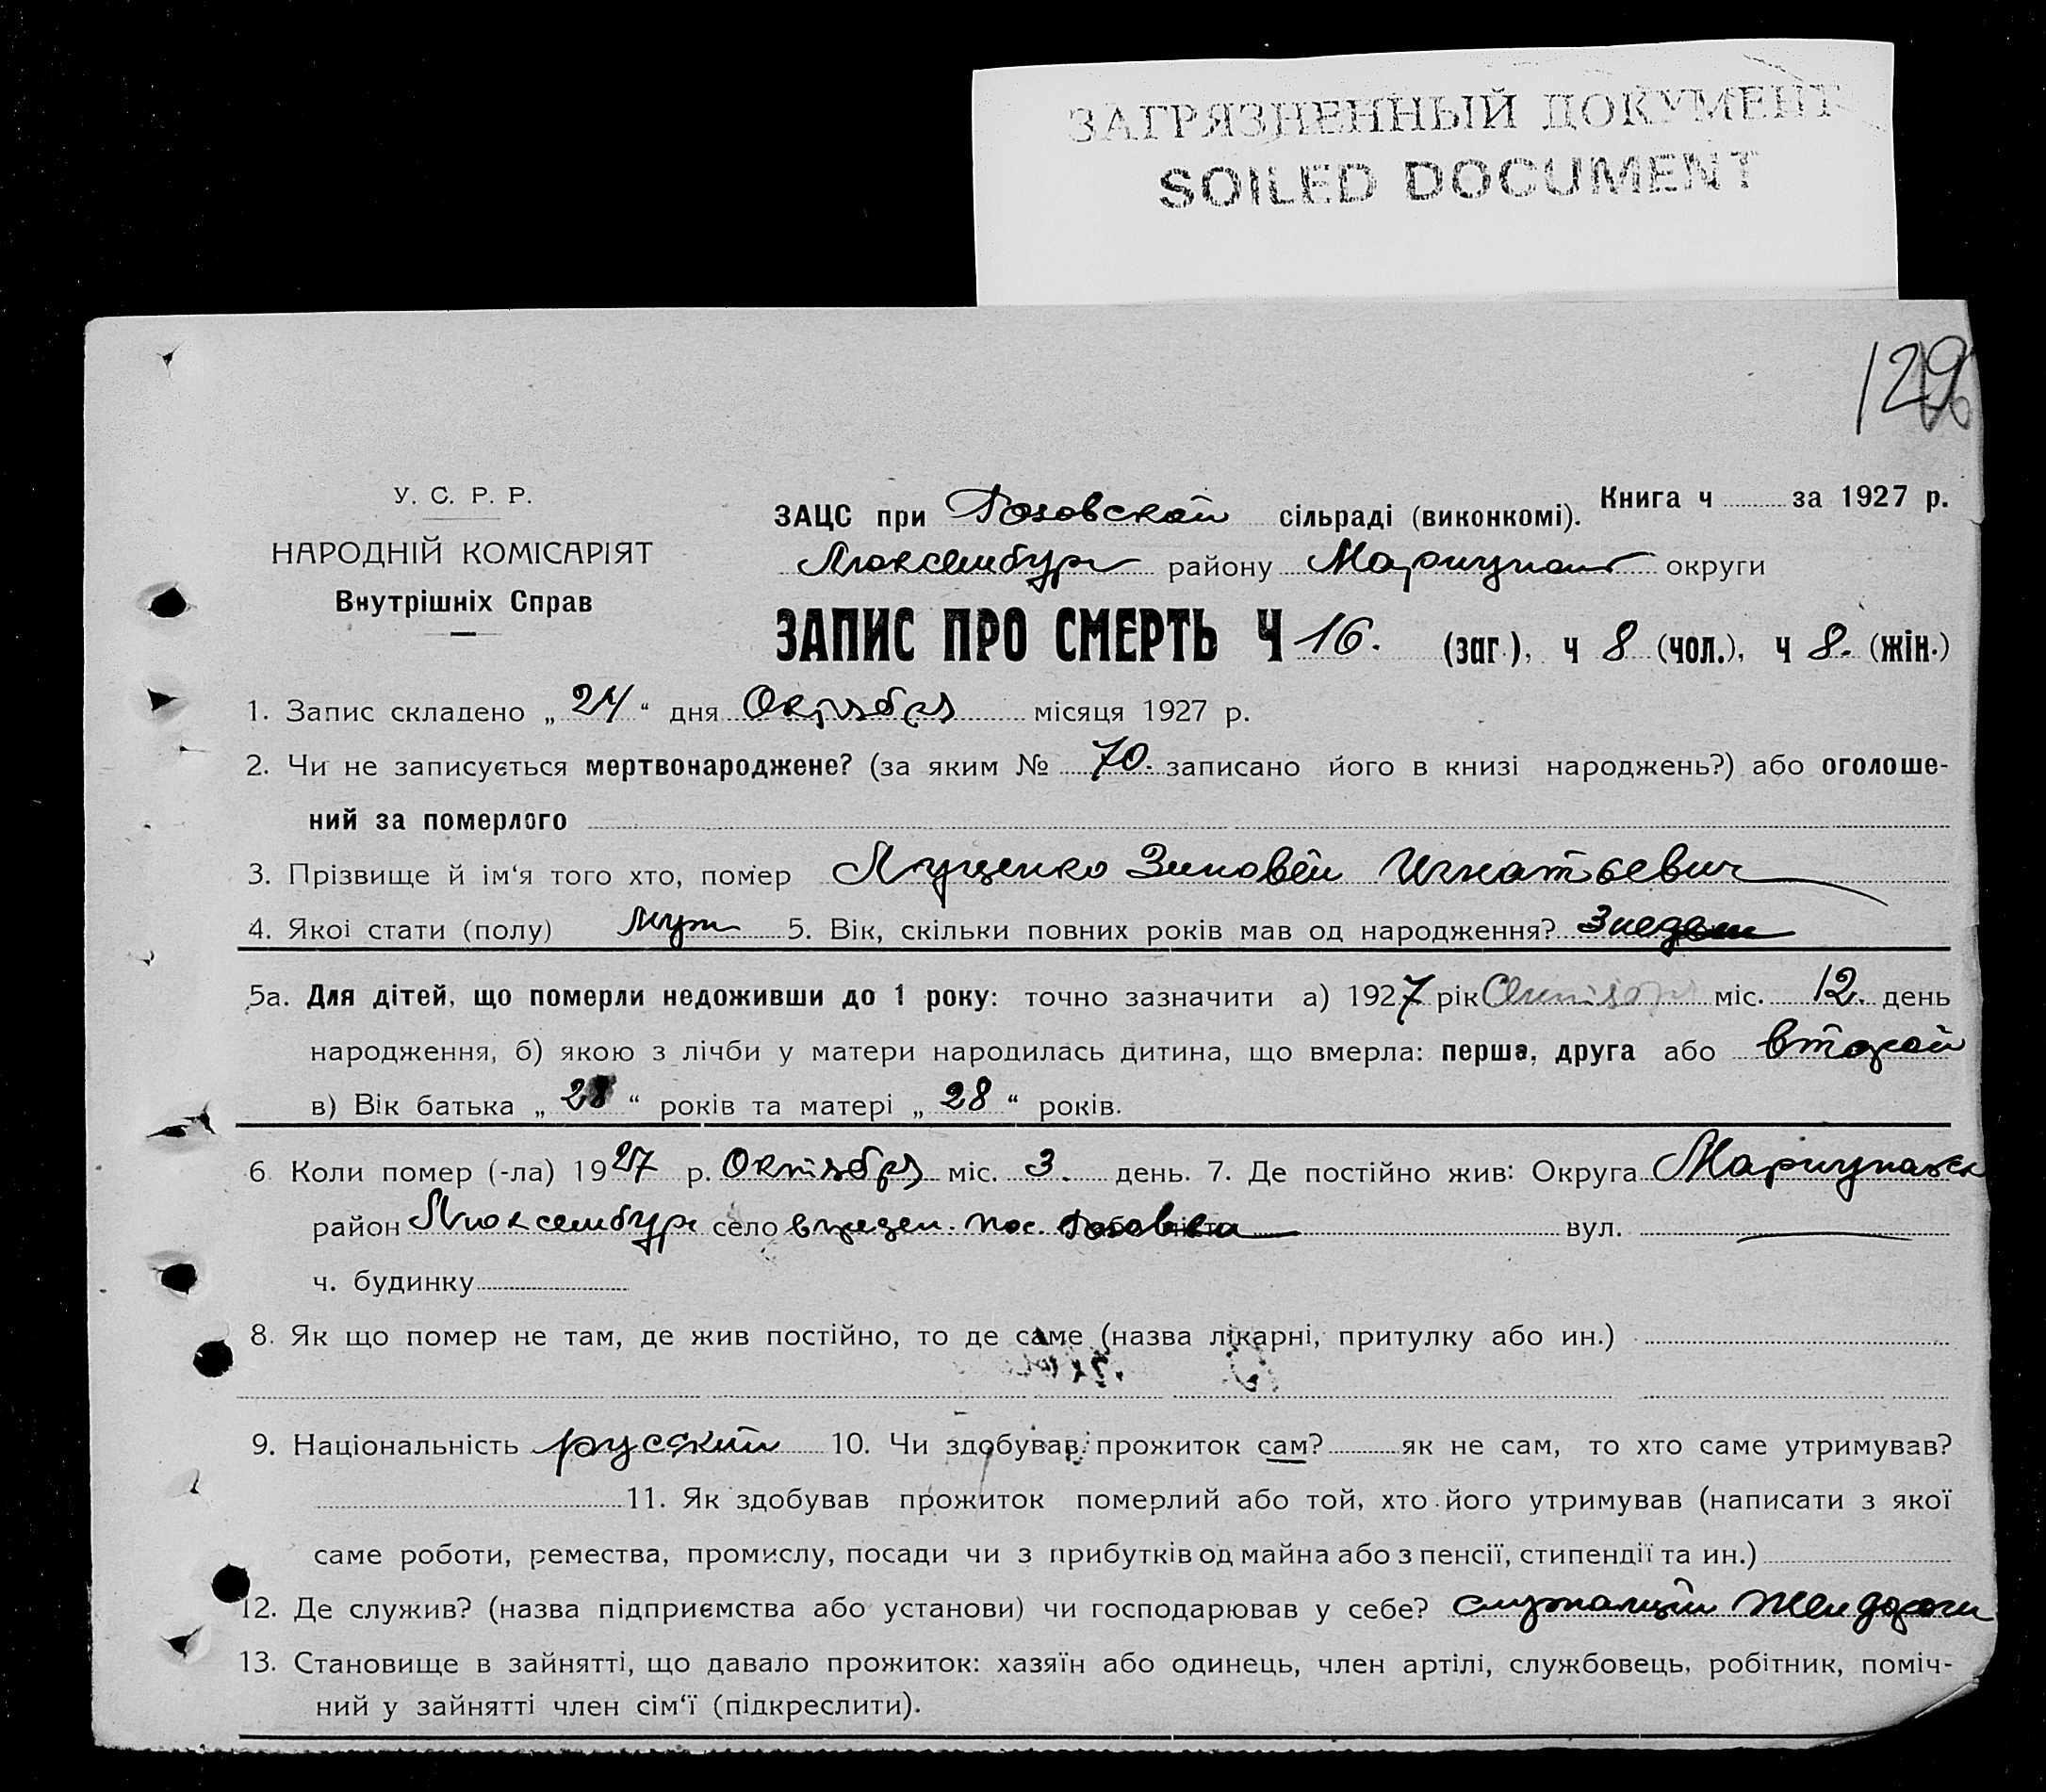 ЗАГРЯЗНЕННЫЙ ДОКУМЕНТ
SOILED DOCUMENT
129
У. С. Р. Р.
НАРОДНІЙ КОМІСАРІЯТ
Внутрішніх Справ
Книга ч за 1927 р.
ЗАЦС при Розовской сільраді (виконкомі).
Люксембург району Мариупол округи
ЗАПИС ПРО СМЕРТЬ Ч 16. (заг.), ч 8 (чол.), ч 8. (жін.)
1. Запис складено „ 24 “ дня Октября місяця 1927 р.
2. Чи не записується мертвонароджене? (за яким № 70. записано його в книзі народжень?) або оголоше-
ний за померлого
3. Прізвище й ім‘я того хто, помер Луценко Зиновей Игнатьевич
4. Якої стати (полу) муж 5. Вік, скільки повних років мав од народження? 3 недели
5а. Для дітей, що померли недоживши до 1 року: точно зазначити а) 1927 рік міс. 12. день
народження, б) якою з лічби у матери народилась дитина, що вмерла: перша, друга або второй
в) Вік батька „ 28 “ років та матері „ 28 “ років.
6 Коли помер (-ла) 1927 р. Октября міс. 3. день. 7. Де постійно жив: Округа Мариупольск
район Люксембург село пос. Розовка вул.
ч. будинку
8. Як що помер не там, де жив постійно, то де саме (назва лікарні, притулку або ин.)
9. Національність русский 10. Чи здобував прожиток сам? як не сам, то хто саме утримував?
11. Як здобував прожиток померлий або той, хто його утримував (написати з якої
саме роботи, ремества, промислу, посади чи з прибутків од майна або з пенсії, стипендії та ин.)
12. Де служив? (назва підприємства або установи) чи господарював у себе? служащий Жел дороги
13. Становище в зайнятті, що давало прожиток: хазяїн або одинець, член артілі, службовець, робітник, поміч-
ний у зайнятті член сім‘ї (підкреслити).